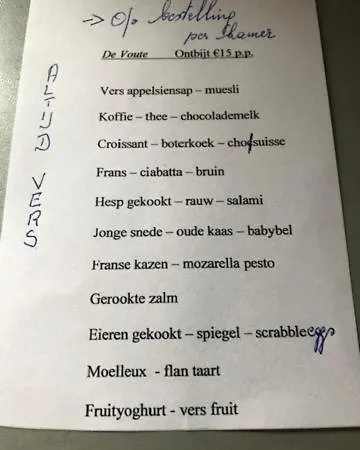 → O/o bestelling
per kamer
De Voute Ontbijt €15 p.p.
ALTIJD VERS
Vers appelsiensap – muesli
Koffie – thee – chocolademelk
Croissant – boterkoek – chofsuisse
Frans – ciabatta – bruin
Hesp gekookt – rauw – salami
Jonge snede – oude kaas – babybel
Franse kazen – mozarella pesto
Gerookte zalm
Eieren gekookt – spiegel – scrabbleeggs
Moelleux - flan taart
Fruityoghurt - vers fruit